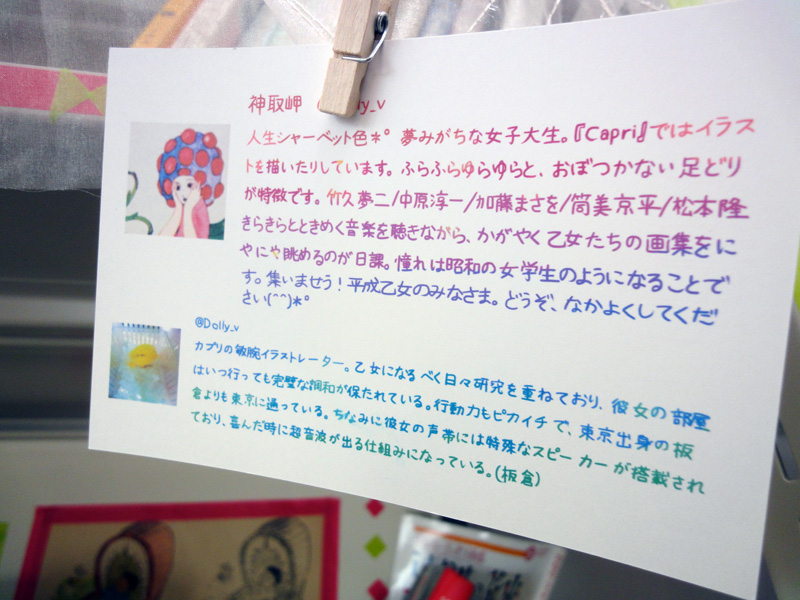 神取岬 @Dolly_v
人生シャーベット色＊° 夢みがちな女子大生。『Capri』ではイラス
トを描いたりしています。ふらふらゆらゆらと、おぼつかない足どり
が特徴です。竹久夢二/中原淳一/加藤まさを/筒美京平/松本隆
きらきらとときめく音楽を聴きながら、かがやく乙女たちの画集をに
やにや眺めるのが日課。憧れは昭和の女学生のようになることで
す。集いませう！平成乙女のみなさま。どうぞ、なかよくしてくだ
さい(^^)＊°
@Dolly_v
カプリの敏腕イラストレーター。乙女になるべく日々研究を重ねており、彼女の部屋
はいつ行っても完璧な調和が保たれている。行動力もピカイチで、東京出身の板
倉よりも東京に通っている。ちなみに彼女の声帯には特殊なスピーカーが搭載され
ており、喜んだ時に超音波が出る仕組みになっている。(板倉)